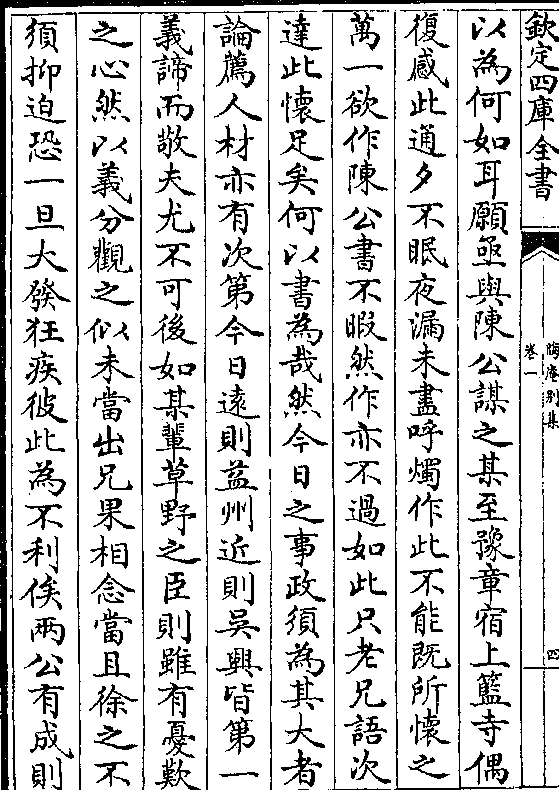 欽定四庫全書
晦庵别集
卷一
四
以為何如耳願亟與陳公謀之某至豫章宿上籃寺偶
復感此通夕不眠夜漏未盡呼燭作此不能既所懷之
萬一欲作陳公書不暇然作亦不過如此只老兄語次
達此懷足矣何以書為哉然今日之事政須為其大者
論薦人材亦有次第今日逺則益州近則吳興皆第一
義諦而敬夫尤不可後如某輩草野之臣則雖有憂歎
之心然以義分觀之似未當出兄果相念當且徐之不
須抑迫恐一旦大發狂疾彼此為不利俟兩公有成則